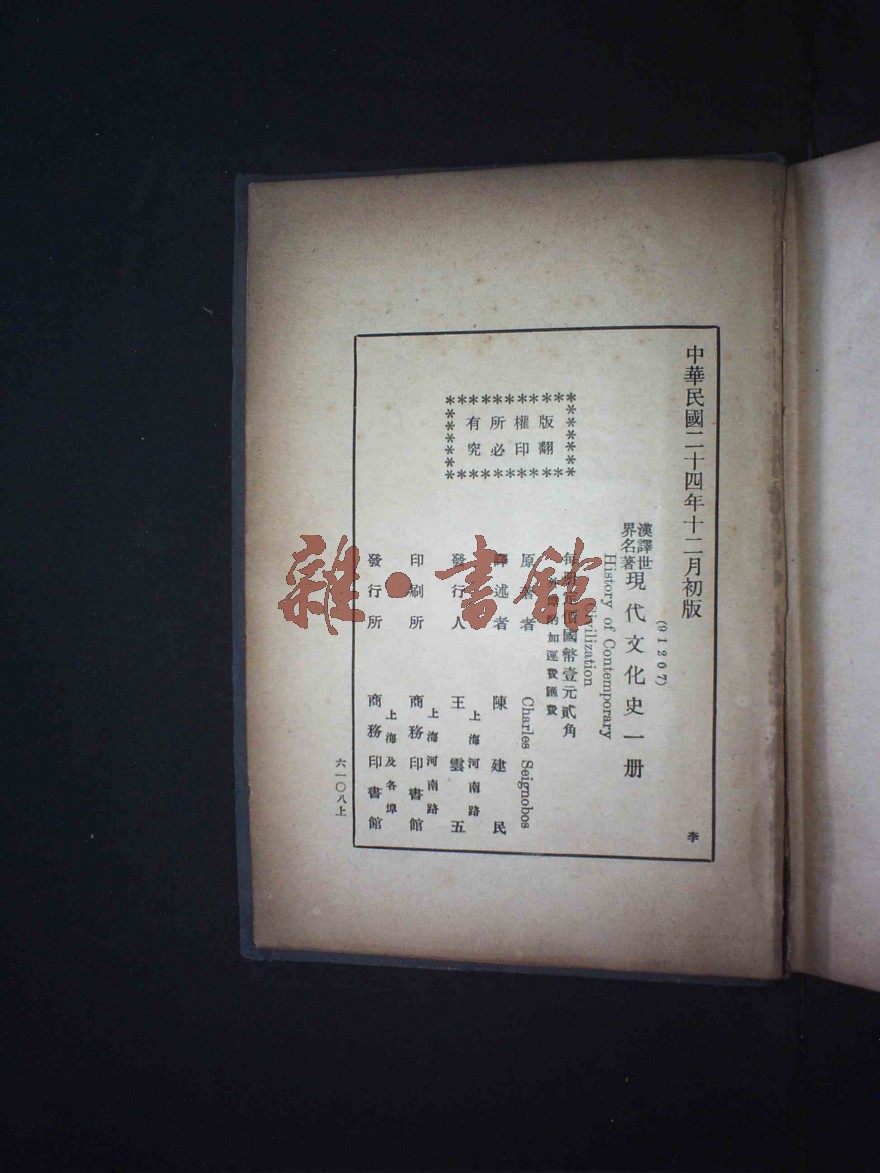 中華民國二十四年十二月初版
(91207)
漢譯世
界名著
現代文化史一册
History of Contemporary
Civilization
每册定價國幣壹元貳角
外埠酌加運費匯費
版權所有
翻印必究
原著者 Charles Seignobos
譯述者 陳建民
發行人 王雲五
上海河南路
印刷所 商務印書館
上海河南路
發行所 商務印書館
上海及各埠
六一〇八上
李
雜·書館